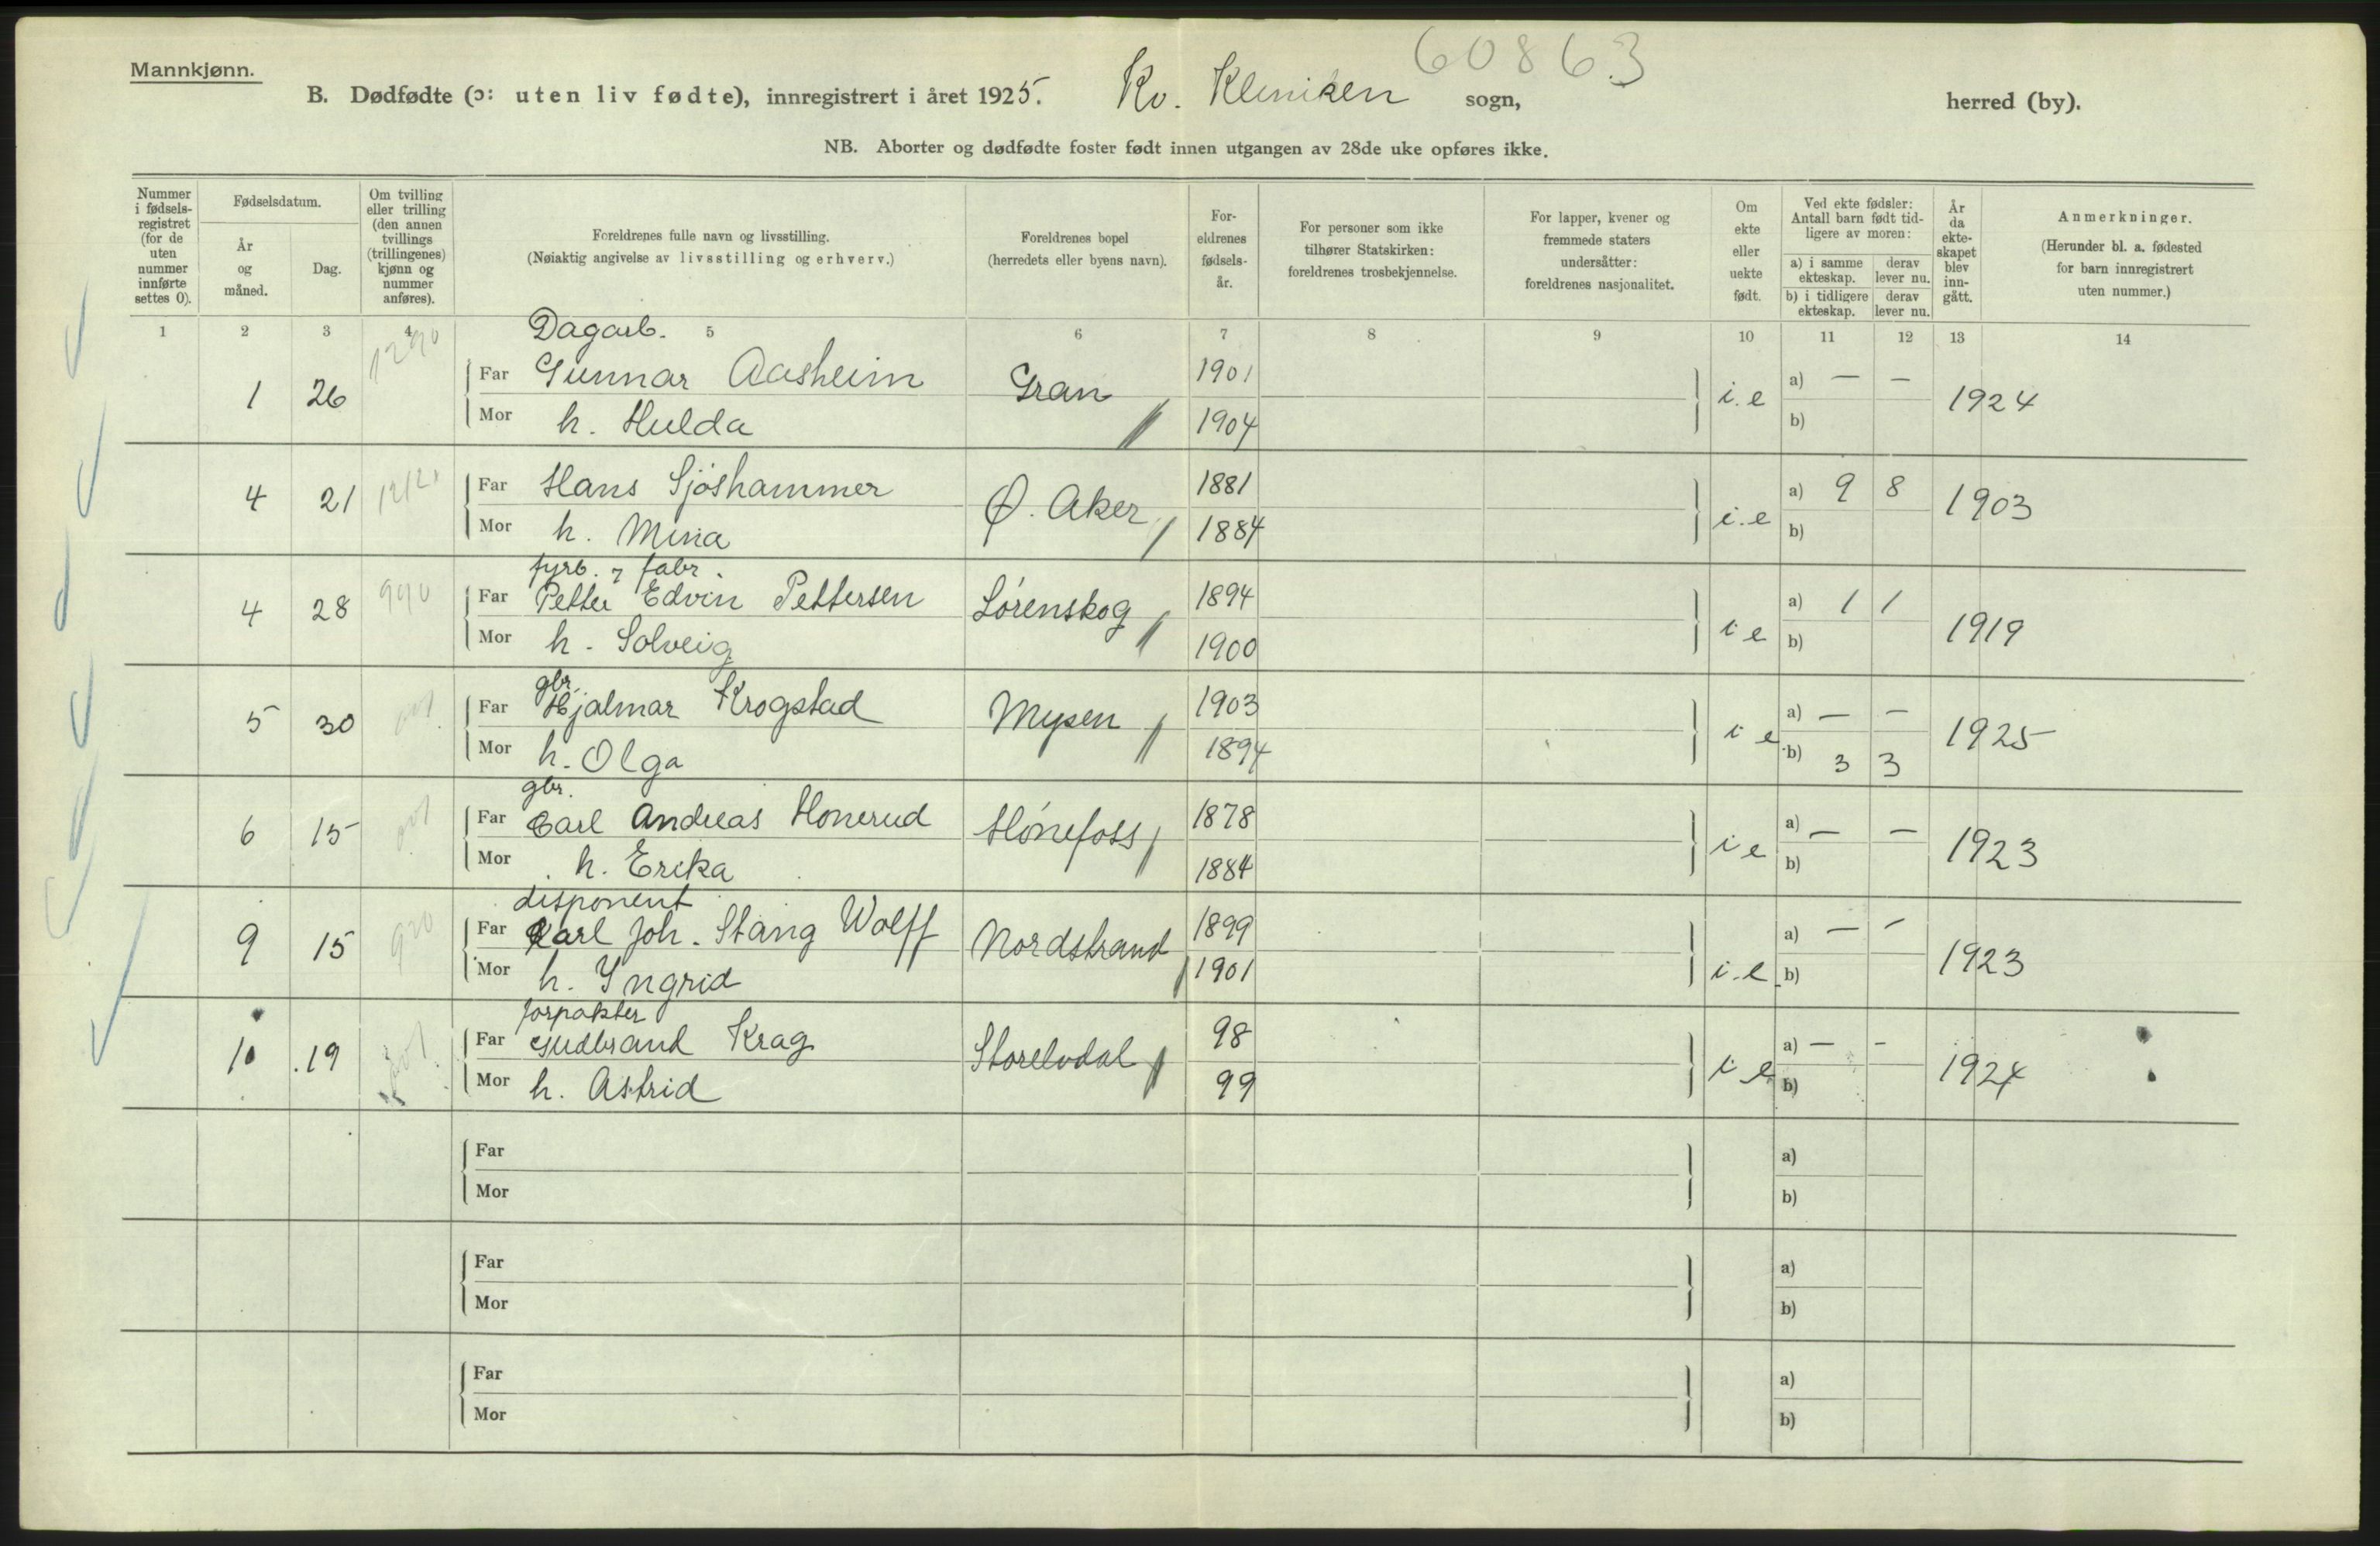 60863
Mannkjønn.
B. Dødfødte (ɔ: uten liv fødte), innregistrert i året 1925. Kv. Kleniken sogn, herred (by).
NB. Aborter og dødfødte foster født innen utgangen av 28de uke opføres ikke.
Nummer i fødsels-registret (for de uten nummer innførte settes 0).
Fødselsdatum.
År og måned.
Dag.
Om tvilling eller trilling (den annen tvillings (trillingenes) kjønn og nummer anføres).
Foreldrenes fulle navn og livsstilling.
(Nøiaktig angivelse av livsstilling og erhverv.)
Foreldrenes bopel
(herredets eller byens navn).
For-eldrenes fødsels-år.
For personer som ikke tilhører Statskirken: foreldrenes trosbekjennelse.
For lapper, kvener og fremmede staters undersåtter: foreldrenes nasjonalitet.
Om ekte eller uekte født.
Ved ekte fødsler: Antall barn født tid-ligere av moren:
a) i samme ekteskap. derav lever nu.
b) i tidligere ekteskap. derav lever nu.
År da ekte-skapet blev inn-gått.
Anmerkninger.
(Herunder bl. a. fødested for barn innregistrert uten nummer.)
1 2 3 4 5 6 7 8 9 10 11 12 13 14
1290
Dagarb.
1 26 Far Gunnar Aasheim Gran 1901 i.e a) — — 1924
Mor h. Hulda 1904 b)
4 21 Far Hans Sjøshammer Ø. Aker 1881 i.e a) 9 8 1903
Mor h. Mina 1884 b)
fyrb. 7 fabr.
4 28 990 Far Petter Edvin Pettersen Lørenskog 1894 i e a) 1 1 1919
Mor h. Solveig 1900 b)
gbr.
5 30 Far Hjalmar Krogstad Mysen 1903 i e a) — — 1925
Mor h. Olga 1894 b) 3 3
gbr.
6 15 Far Carl Andreas Honerud Hønefoss 1878 i e a) — — 1923
Mor h. Erika 1884 b)
disponent
9 15 920 Far Karl Joh. Stang Wolff Nordstrand 1899 i.e a) — — 1923
Mor h. Yngrid 1901 b)
forpakter
10 19 Far Gudbrand Krag Storelvdal 98 i e a) — — 1924
Mor h. Astrid 99 b)
Far a)
Mor b)
Far a)
Mor b)
Far a)
Mor b)